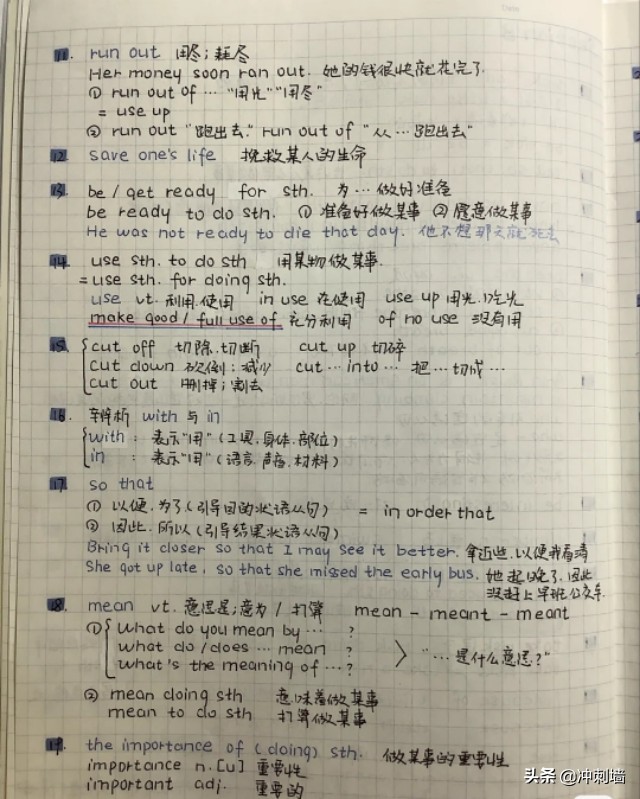 11. run out 用尽;耗尽
Her money soon ran out. 她的钱很快就花完了.
① run out of … "用光""用尽"
= use up
② run out "跑出去." run out of "从…跑出去"
12. save one's life 挽救某人的生命
13. be / get ready for sth. 为…做好准备
be ready to do sth. ① 准备好做某事 ② 愿意做某事
He was not ready to die that day. 他不想那天就死去
14. use sth. to do sth 用某物做某事.
= use sth. for doing sth.
use vt. 利用.使用 in use 在使用 use up 用光.吃光
make good / full use of 充分利用 of no use 没有用
15. cut off 切除.切断 cut up 切碎
cut down 砍倒;减少 cut … into … 把…切成…
cut out 删掉;割去
16. 辨析 with 与 in
with : 表示"用"(工具.身体.部位)
in : 表示"用"(语言.声音.材料)
17. so that
① 以便.为了(引导目的状语从句) = in order that
② 因此.所以(引导结果状语从句)
Bring it closer so that I may see it better. 拿近些.以便我看清
She got up late, so that she missed the early bus. 她起晚了.因此
没赶上早班公交车.
18. mean vt. 意思是;意为 / 打算 mean - meant - meant
① What do you mean by … ?
what do /does … mean ?
what's the meaning of … ?
"…是什么意思?"
② mean doing sth 意味着做某事
mean to do sth 打算做某事
19. the importance of (doing) sth. 做某事的重要性
importance n.[u] 重要性
important adj. 重要的
头条 @冲刺墙